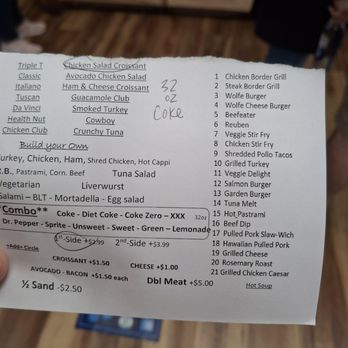 Triple T
Chicken Salad Croissant
Classic
Avocado Chicken Salad
Italiano
Ham & Cheese Croissant
Tuscan
Guacamole Club
Da Vinci
Smoked Turkey
Health Nut
Cowboy
Chicken Club
Crunchy Tuna
32
oz
Coke
Build your Own
Turkey, Chicken, Ham, Shred Chicken, Hot Cappi
R.B., Pastrami, Corn. Beef Tuna Salad
Vegetarian Liverwurst
Salami – BLT - Mortadella - Egg salad
*Combo** Coke - Diet Coke - Coke Zero – XXX 32oz
Dr. Pepper - Sprite - Unsweet - Sweet - Green – Lemonade
+Add+ Circle 1st-Side +$2.99 2nd-Side +$3.99
CROISSANT +$1.50 CHEESE +$1.00
AVOCADO - BACON +$1.50 each
½ Sand -$2.50 Dbl Meat +$5.00
1 Chicken Border Grill
2 Steak Border Grill
3 Wolfe Burger
4 Wolfe Cheese Burger
5 Beefeater
6 Reuben
7 Veggie Stir Fry
8 Chicken Stir Fry
9 Shredded Pollo Tacos
10 Grilled Turkey
11 Veggie Delight
12 Salmon Burger
13 Garden Burger
14 Tuna Melt
15 Hot Pastrami
16 Beef Dip
17 Pulled Pork Slaw-Wich
18 Hawaiian Pulled Pork
19 Grilled Cheese
20 Rosemary Roast
21 Grilled Chicken Caesar
Hot Soup